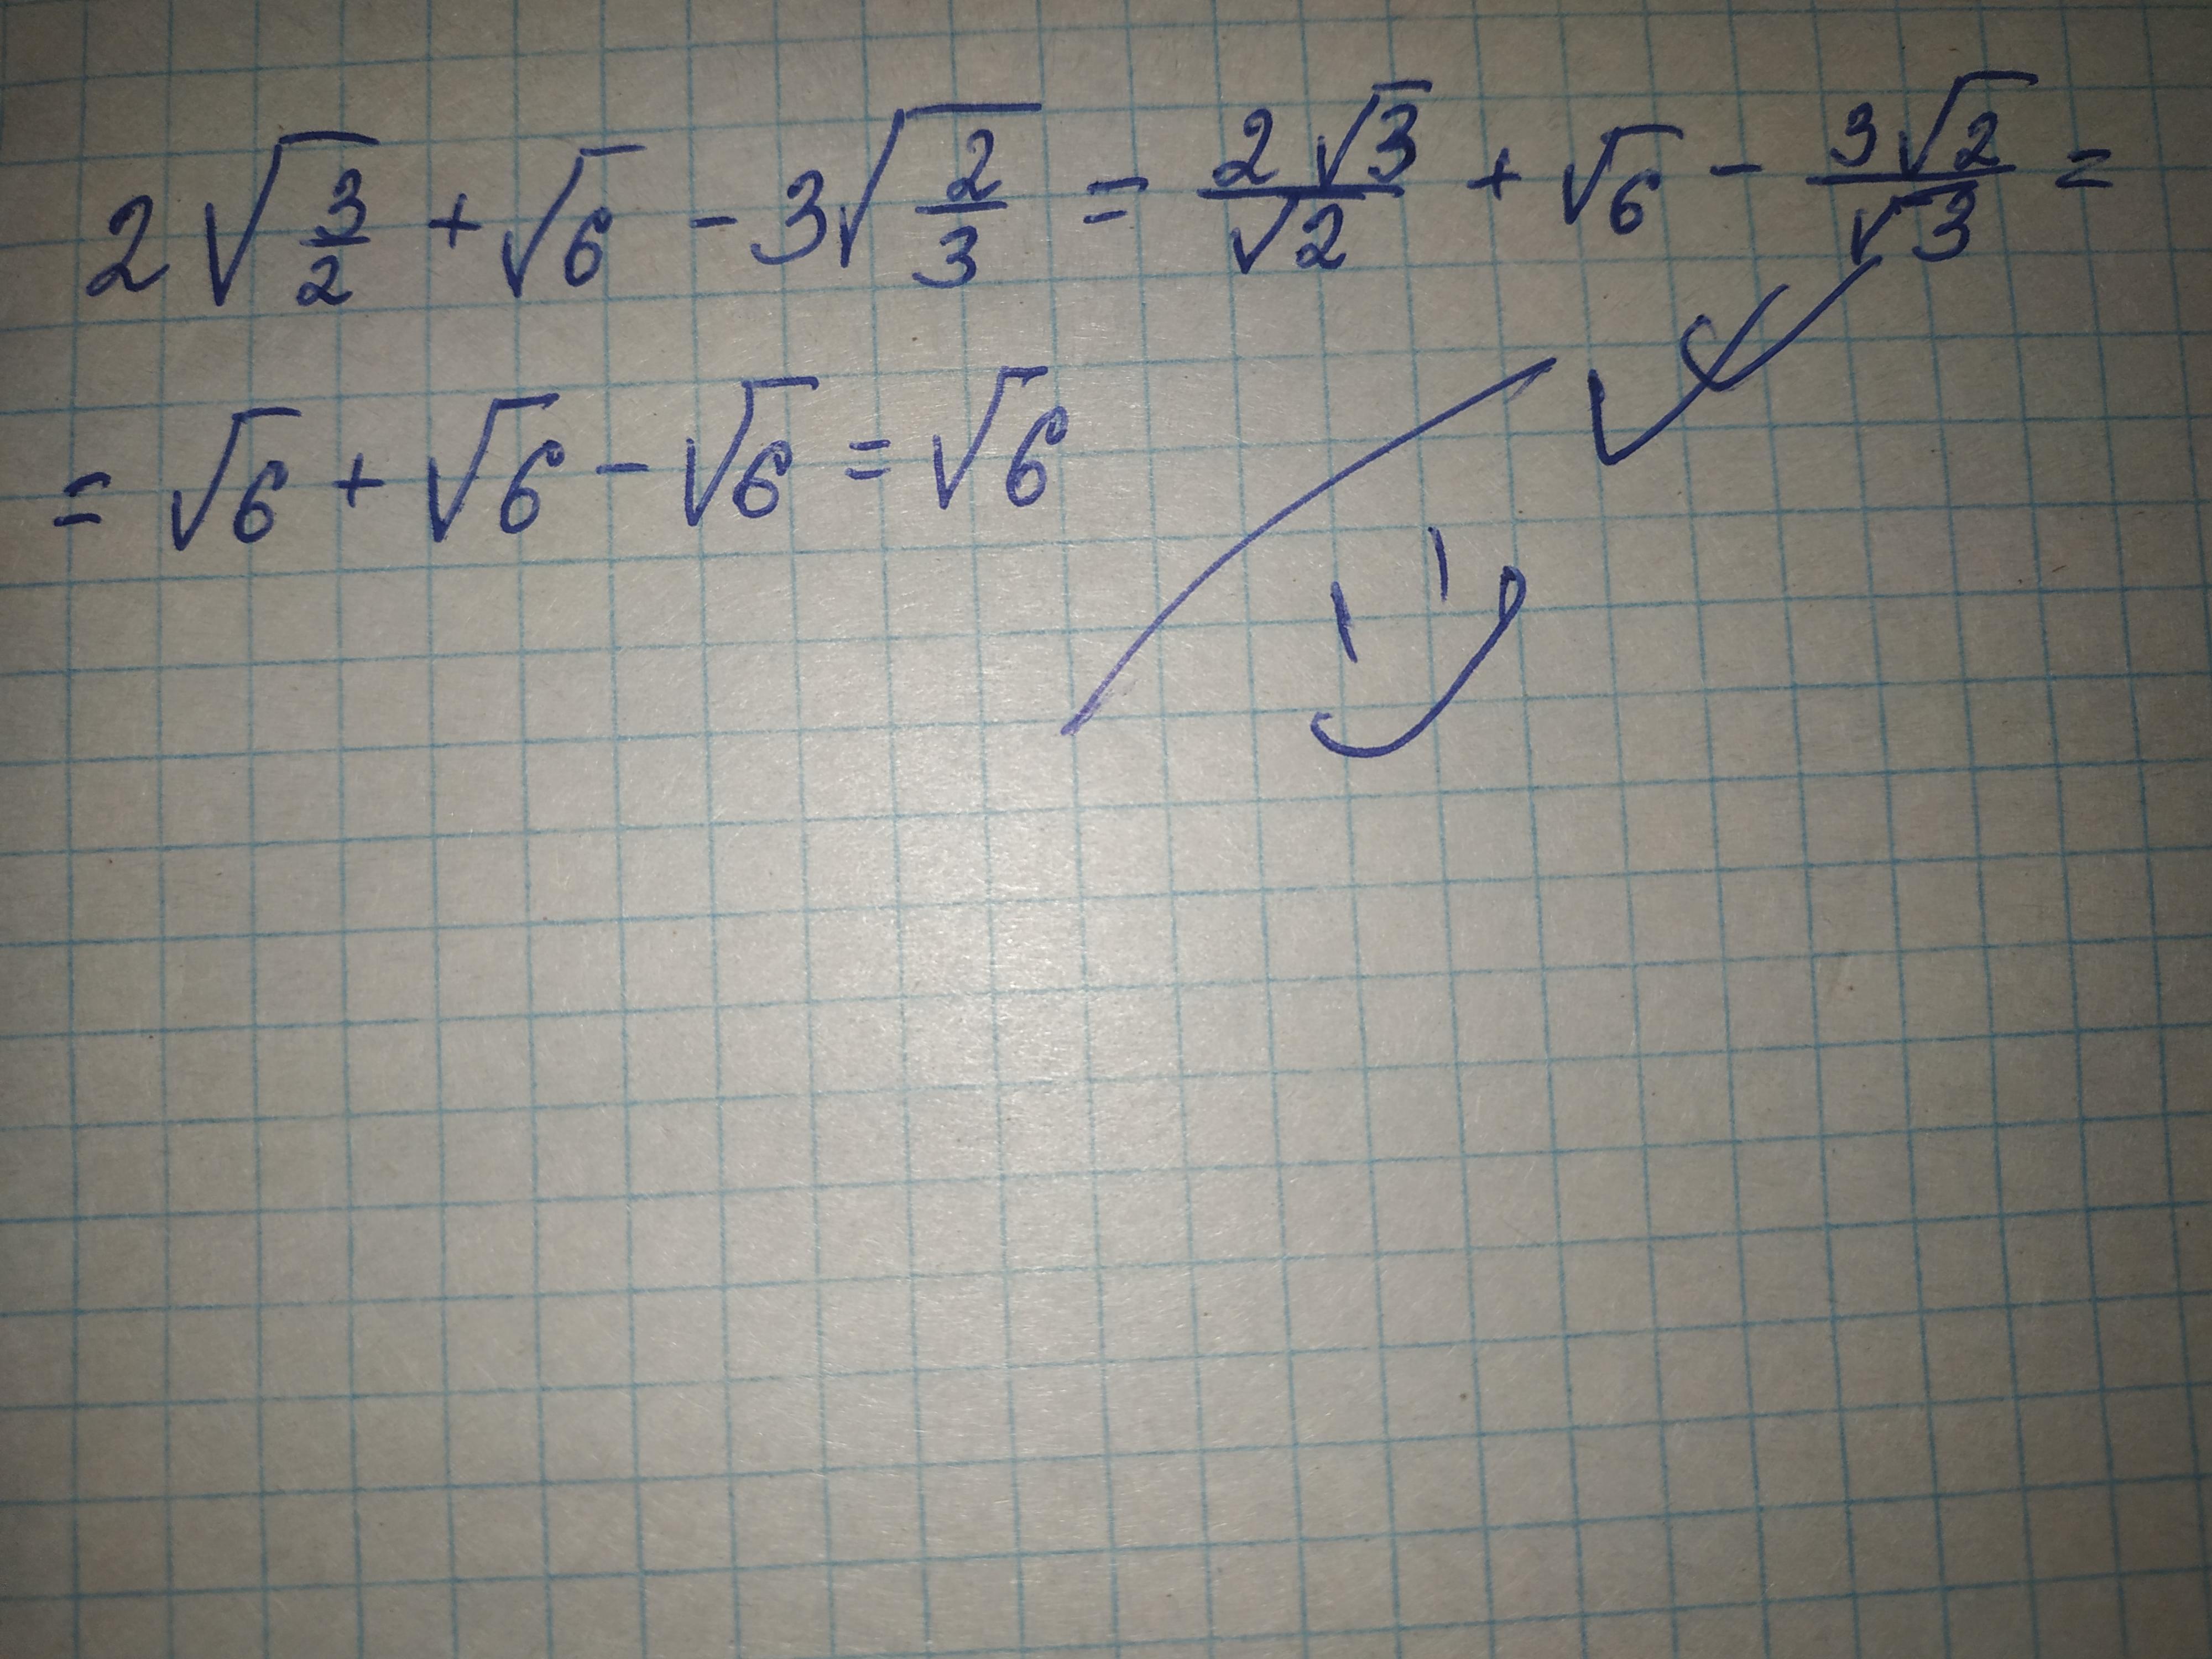 2√(3/2) + √6 - 3√(2/3) = 2√3/√2 + √6 - 3√2/√3 =
= √6 + √6 - √6 = √6